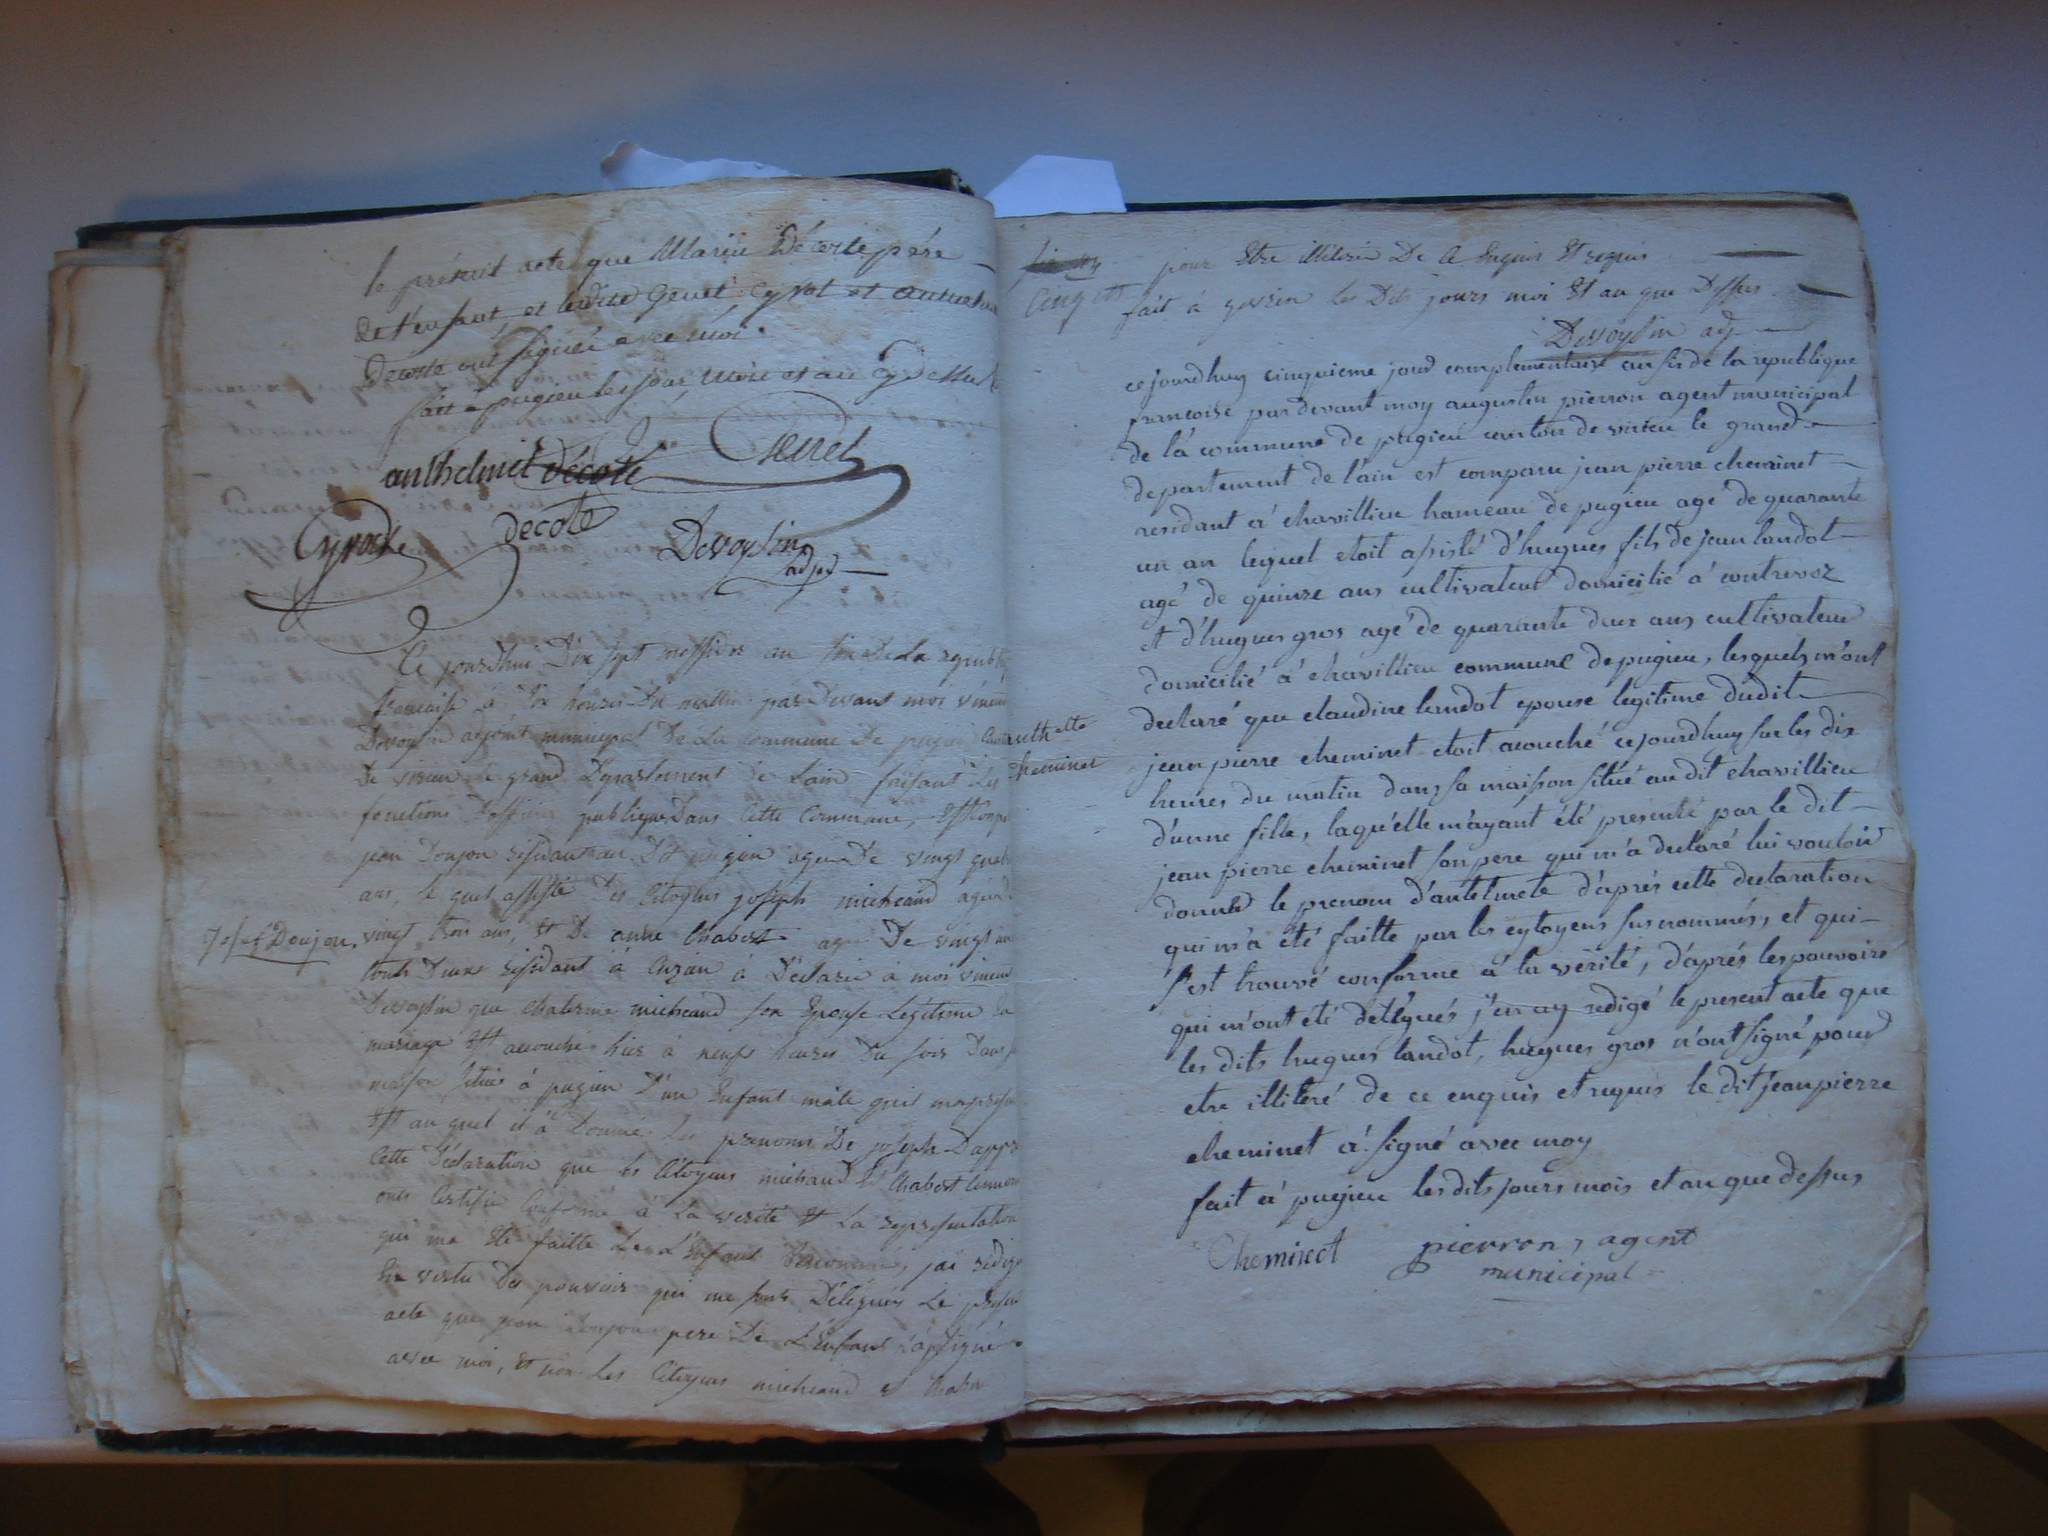 le présent acte que Marin Décote père
de l'enfant et ledit Genet Cyvoct et
Decote ont signé avec moi
fait à pugieu les jour mois et an cy dessus
anthelmet décote Genet
decote
Devoysin
adjoi
Ce jourdhui Dix sept messidor an six De La republi
francaise à Dix heures Du matin par Devant moi vincent
Devoysin adjoint municipal De La commune De pugieu
De virieu le grand Departement De Lain faisant Les
fonctions D'officier publique Dans Cette Commune, Est Comp
jean Doujon residant au Dit pugieu age De vingt quat
ans, le quel assisté Des Citoyens joseph micheaud age de
Josef Doujon.
vingt trois ans, et De anne Chabert age De vingt
touts Deux residant à Cuzieu à Déclaré à moi vincent
Devoysin que Chaterine micheaud son Epouse Légitime En
mariage Est accouchée hier à neufs heures Du soir Dans
maison située à pugieu D'un Enfant mâle qu'il
Et au quel il à Donné Les prenoms De joseph D'apprè
Cette Déclaration que les Citoyens micheaud Et Chabert
onts Certifié Conforme à La verité Et La representation
qui ma Eté faitte De L'Enfant Denommé, jai redigé
En vertu Des pouvoirs qui me sont Délégués Le presen
acte que jean Doujon pere De L'Enfant à signé
avec moi, Et non Les Citoyens micheaud et Chabe
Cinq
pour Etre illiteré De Ce Enquis Et requis
fait à pugieu les Dits jours moi Et an que Dessus
Devoysin adj
ce jourdhuy cinquieme jour complementaire an six de la republique
francoise par devant moy augustin pierron agent municipal
de la commune de pugieu canton de virieu le grand
departement de l'ain est comparu jean pierre cheminet
residant à chavillieu hameau de pugieu agé de quarante
un an lequel etoit assisté d'hugues fils de jean landot
agé de quinze ans cultivateur domicilié à contrevoz
et d'hugues gros agé de quarante deux ans cultivateur
domicilié à chavillieu commune de pugieu, lesquels m'ont
declaré que claudine landot epouse legitime dudit
anthelte
cheminet
jean pierre cheminet etoit acouché ce jourdhuy sur les dix
heures du matin dans sa maison situé au dit chavillieu
d'unne fille, laqu'elle m'ayant été presenté par le dit
jean pierre cheminet son pere qui m'a declaré lui vouloir
donner le prenom d'antelmete d'aprés cette declaration
qui m'a été faitte par les cytoyens sus nommés, et qui
s'est trouvé conforme à la verité, d'aprés les pouvoirs
qui m'ont été delegués j'en ay redigé le present acte que
les dits hugues landot, hugues gros n'ont signé pour
etre illiteré de ce enquis et requis le dit jean pierre
cheminet à signé avec moy
fait à pugieu les dits jours mois et an que dessus
Cheminet pierron, agent
municipal